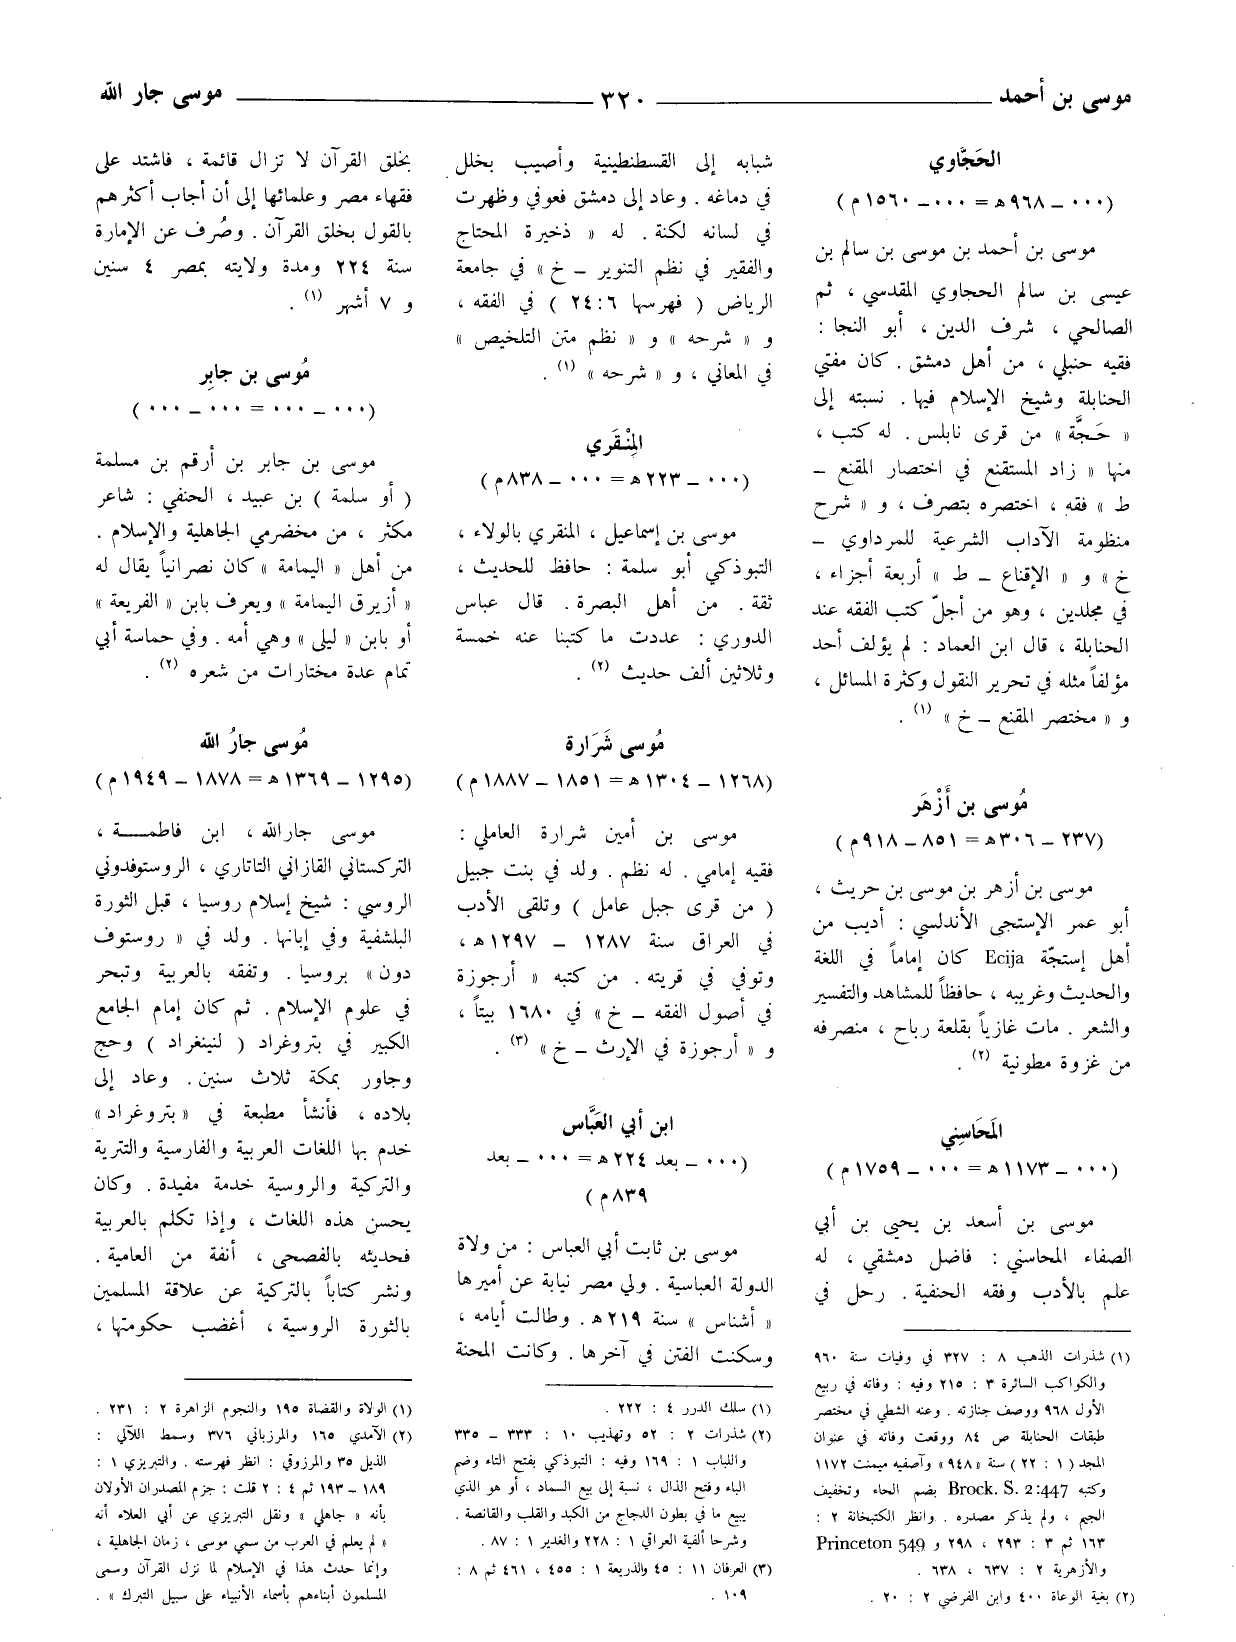 موسى بن أحمد ــــــ ٣٢٠ ــــــ موسى جار الله
الحَجَّاوي
(٠٠٠ ــ ٩٦٨هـ = ٠٠٠ ــ ١٥٦٠م)
موسى بن أحمد بن موسى بن سالم بن
عيسى بن سالم الحجاوي المقدسي ، ثم
الصالحي ، شرف الدين ، أبو النجا :
فقيه حنبلي ، من أهل دمشق . كان مفتي
الحنابلة وشيخ الإسلام فيها . نسبته إلى
« حَجَّة » من قرى نابلس . له كتب ،
منها « زاد المستقنع في اختصار المقنع ــ
ط » فقه ، اختصره بتصرف ، و « شرح
منظومة الآداب الشرعية للمرداوي ــ
خ » و « الإقناع ــ ط » أربعة أجزاء ،
في مجلدين ، وهو من أجلّ كتب الفقه عند
الحنابلة ، قال ابن العماد : لم يؤلف أحد
مؤلفاً مثله في تحرير النقول وكثرة المسائل ،
و « مختصر المقنع ــ خ » (١) .
مُوسى بن أَزْهَر
(٢٣٧ ــ ٣٠٦هـ = ٨٥١ ــ ٩١٨م)
موسى بن أزهر بن موسى بن حريث ،
أبو عمر الإستجي الأندلسي : أديب من
أهل إستجّة Ecija كان إماماً في اللغة
والحديث وغريبه ، حافظاً للمشاهد والتفسير
والشعر . مات غازياً بقلعة رباح ، منصرفه
من غزوة مطونية (٢) .
المَحَاسِني
(٠٠٠ ــ ١١٧٣هـ = ٠٠٠ ــ ١٧٥٩م)
موسى بن أسعد بن يحيى بن أبي
الصفاء المحاسني : فاضل دمشقي ، له
علم بالأدب وفقه الحنفية . رحل في
(١) شذرات الذهب ٨ : ٣٢٧ في وفيات سنة ٩٦٠
والكواكب السائرة ٣ : ٢١٥ وفيه : وفاته في ربيع
الأول ٩٦٨ ووصف جنازته . وعنه الشطي في مختصر
طبقات الحنابلة ص ٨٤ ووقعت وفاته في عنوان
المجد ( ١ : ٢٢ ) سنة « ٩٤٨ » وآصفيه ميمنت ١١٧٢
وكتبه Brock. S. 2:447 بضم الحاء وتخفيف
الجيم ، ولم يذكر مصدره . وانظر الكتبخانة ٢ :
١٦٣ ثم ٣ : ٢٩٣ ، ٢٩٨ و Princeton 549
والأزهرية ٢ : ٦٣٧ ، ٦٣٨ .
(٢) بغية الوعاة ٤٠٠ وابن الفرضي ٢ : ٢٠ .
شبابه إلى القسطنطينية وأصيب بخلل
في دماغه . وعاد إلى دمشق فعوفي وظهرت
في لسانه لكنة . له « ذخيرة المحتاج
والفقير في نظم التنوير ــ خ » في جامعة
الرياض ( فهرسها ٦ :٢٤ ) في الفقه ،
و « شرحه » و « نظم متن التلخيص »
في المعاني ، و « شرحه » (١) .
المِنْقَري
(٠٠٠ ــ ٢٢٣هـ = ٠٠٠ ــ ٨٣٨م)
موسى بن إسماعيل ، المنقري بالولاء ،
التبوذكي أبو سلمة : حافظ للحديث ،
ثقة . من أهل البصرة . قال عباس
الدوري : عددت ما كتبنا عنه خمسة
وثلاثين ألف حديث (٢) .
مُوسى شَرَارة
(١٢٦٨ ــ ١٣٠٤هـ = ١٨٥١ ــ ١٨٨٧م)
موسى بن أمين شرارة العاملي :
فقيه إمامي . له نظم . ولد في بنت جبيل
( من قرى جبل عامل ) وتلقى الأدب
في العراق سنة ١٢٨٧ ــ ١٢٩٧هـ ،
وتوفي في قريته . من كتبه « أرجوزة
في أصول الفقه ــ خ » في ١٦٨٠ بيتاً ،
و « أرجوزة في الإرث ــ خ » (٣) .
ابن أبي العَبَّاس
(٠٠٠ ــ بعد ٢٢٤هـ = ٠٠٠ ــ بعد
٨٣٩م)
موسى بن ثابت أبي العباس : من ولاة
الدولة العباسية . ولي مصر نيابة عن أميرها
« أشناس » سنة ٢١٩هـ . وطالت أيامه ،
وسكنت الفتن في آخرها . وكانت المحنة
(١) سلك الدرر ٤ : ٢٢٢ .
(٢) شذرات ٢ : ٥٢ وتهذيب ١٠ : ٣٣٣ ــ ٣٣٥
واللباب ١ : ١٦٩ وفيه : التبوذكي بفتح التاء وضم
الباء وفتح الذال ، نسبة إلى بيع السماد ، أو هو الذي
يبيع ما في بطون الدجاج من الكبد والقلب والقانصة .
وشرحا ألفية العراقي ١ : ٢٢٨ والغدير ١ : ٨٧ .
(٣) العرفان ١١ : ٤٥ والذريعة ١ : ٤٥٥ ، ٤٦١ ثم ٨ :
١٠٩ .
بخلق القرآن لا تزال قائمة ، فاشتد على
فقهاء مصر وعلمائها إلى أن أجاب أكثرهم
بالقول بخلق القرآن . وصُرف عن الإمارة
سنة ٢٢٤ ومدة ولايته بمصر ٤ سنين
و ٧ أشهر (١) .
مُوسى بن جابِر
(٠٠٠ ــ ٠٠٠ = ٠٠٠ ــ ٠٠٠)
موسى بن جابر بن أرقم بن مسلمة
( أو سلمة ) بن عبيد ، الحنفي : شاعر
مكثر ، من مخضرمي الجاهلية والإسلام .
من أهل « اليمامة » كان نصرانياً يقال له
« أزيرق اليمامة » ويعرف بابن « الفريعة »
أو بابن « ليلى » وهي أمه . وفي حماسة أبي
تمام عدة مختارات من شعره (٢) .
مُوسى جارُ الله
(١٢٩٥ ــ ١٣٦٩هـ = ١٨٧٨ ــ ١٩٤٩م)
موسى جارالله ، ابن فاطمــــة ،
التركستاني القازاني التاتاري ، الروستوفدوني
الروسي : شيخ إسلام روسيا ، قبل الثورة
البلشفية وفي إبانها . ولد في « روستوف
دون » بروسيا . وتفقه بالعربية وتبحر
في علوم الإسلام . ثم كان إمام الجامع
الكبير في بتروغراد ( لنينغراد ) وحج
وجاور بمكة ثلاث سنين . وعاد إلى
بلاده ، فأنشأ مطبعة في « بتروغراد »
خدم بها اللغات العربية والفارسية والتترية
والتركية والروسية خدمة مفيدة . وكان
يحسن هذه اللغات ، وإذا تكلم بالعربية
فحديثه بالفصحى ، أنفة من العامية .
ونشر كتاباً بالتركية عن علاقة المسلمين
بالثورة الروسية ، أغضب حكومتها ،
(١) الولاة والقضاة ١٩٥ والنجوم الزاهرة ٢ : ٢٣١ .
(٢) الآمدي ١٦٥ والمرزباني ٣٧٦ وسمط اللآلي :
الذيل ٣٥ والمرزوقي : انظر فهرسته . والتبريزي ١ :
١٨٩ ــ ١٩٣ ثم ٤ : ٢ قلت : جزم المصدران الأولان
بأنه « جاهلي » ونقل التبريزي عن أبي العلاء أنه
« لم يعلم في العرب من سمي موسى ، زمان الجاهلية ،
وإنما حدث هذا في الإسلام لما نزل القرآن وسمى
المسلمون أبناءهم بأسماء الأنبياء على سبيل التبرك » .